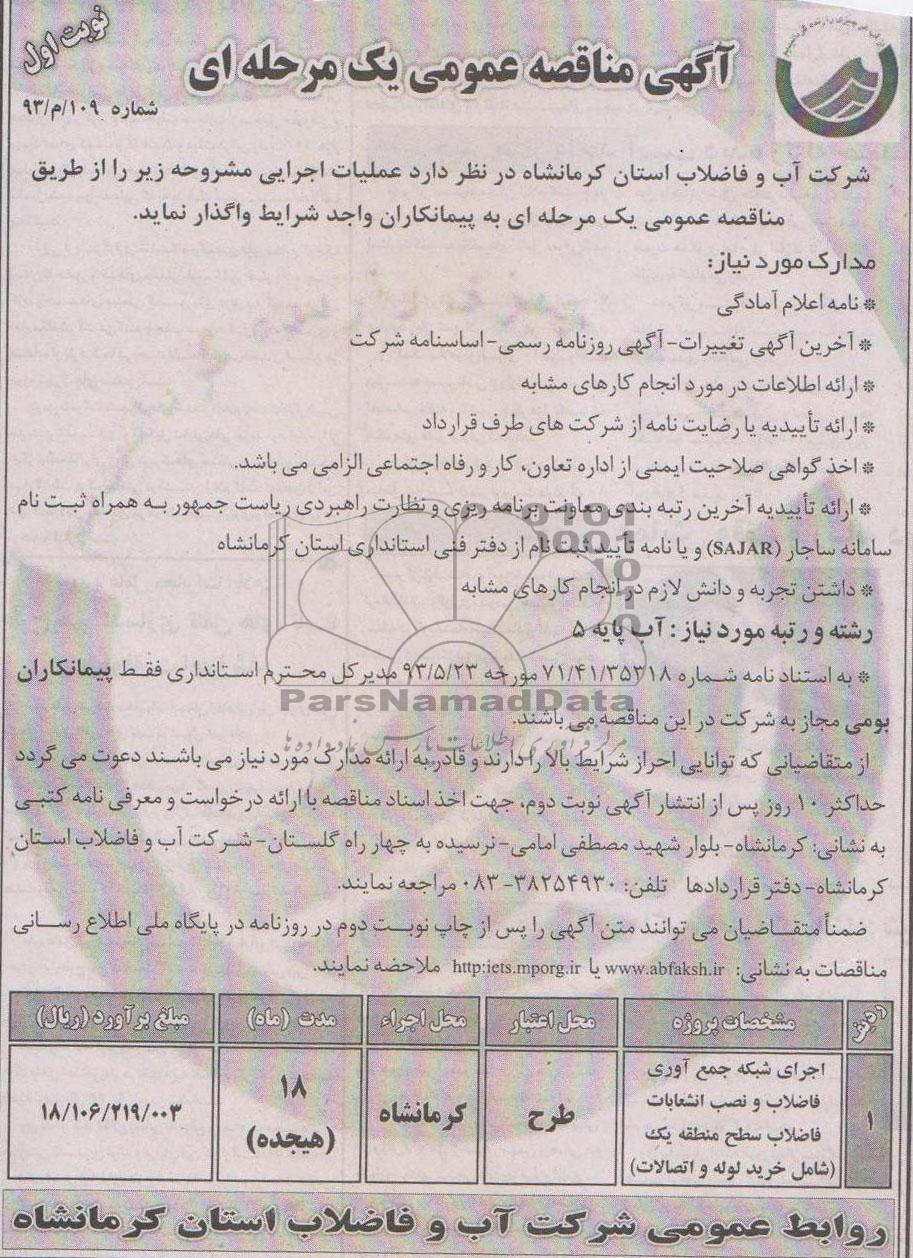 نوبت اول
آگهی مناقصه عمومی یک مرحله ای
شماره ۱۰۹/م/۹۳
شرکت آب و فاضلاب استان کرمانشاه در نظر دارد عملیات اجرایی مشروحه زیر را از طریق
مناقصه عمومی یک مرحله ای به پیمانکاران واجد شرایط واگذار نماید.
مدارک مورد نیاز:
* نامه اعلام آمادگی
* آخرین آگهی تغییرات- آگهی روزنامه رسمی- اساسنامه شرکت
* ارائه اطلاعات در مورد انجام کارهای مشابه
* ارائه تأییدیه یا رضایت نامه از شرکت های طرف قرارداد
* اخذ گواهی صلاحیت ایمنی از اداره تعاون، کار و رفاه اجتماعی الزامی می باشد.
* ارائه تأییدیه آخرین رتبه بندی معاونت برنامه ریزی و نظارت راهبردی ریاست جمهور به همراه ثبت نام
سامانه ساجار (SAJAR) و یا نامه تأیید ثبت نام از دفتر فنی استانداری استان کرمانشاه
* داشتن تجربه و دانش لازم در انجام کارهای مشابه
رشته و رتبه مورد نیاز: آب پایه ۵
* به استناد نامه شماره ۷۱/۴۱/۳۵۳۱۸ مورخه ۹۳/۵/۲۳ مدیر کل محترم استانداری فقط پیمانکاران
ParsNamadData
بومی مجاز به شرکت در این مناقصه می باشند.
مرکز فرآوری اطلاعات پارس نماد داده ها
از متقاضیانی که توانایی احراز شرایط بالا را دارند و قادر به ارائه مدارک مورد نیاز می باشند دعوت می گردد
حداکثر ۱۰ روز پس از انتشار آگهی نوبت دوم، جهت اخذ اسناد مناقصه با ارائه درخواست و معرفی نامه کتبی
به نشانی: کرمانشاه- بلوار شهید مصطفی امامی- نرسیده به چهار راه گلستان- شرکت آب و فاضلاب استان
کرمانشاه- دفتر قراردادها تلفن: ۳۸۲۵۴۹۳۰- ۰۸۳ مراجعه نمایند.
ضمناً متقاضیان می توانند متن آگهی را پس از چاپ نوبت دوم در روزنامه در پایگاه ملی اطلاع رسانی
مناقصات به نشانی: www.abfaksh.ir یا http:iets.mporg.ir ملاحضه نمایند.
ردیف مشخصات پروژه محل اعتبار محل اجراء مدت (ماه) مبلغ برآورد (ریال)
۱ اجرای شبکه جمع آوری
فاضلاب و نصب انشعابات
فاضلاب سطح منطقه یک
(شامل خرید لوله و اتصالات)
طرح
کرمانشاه
۱۸
(هیجده)
۱۸/۱۰۶/۲۱۹/۰۰۳
روابط عمومی شرکت آب و فاضلاب استان کرمانشاه